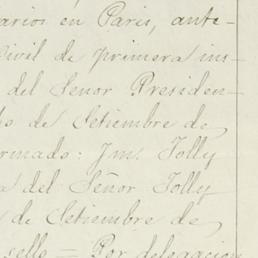 arios en Paris, ante-
Civil de primera ins-
del Señor Presiden-
de Setiembre de
irmado: Jm. Jolly
a del Señor Jolly
de Setiembre de
sello = Por delegacion